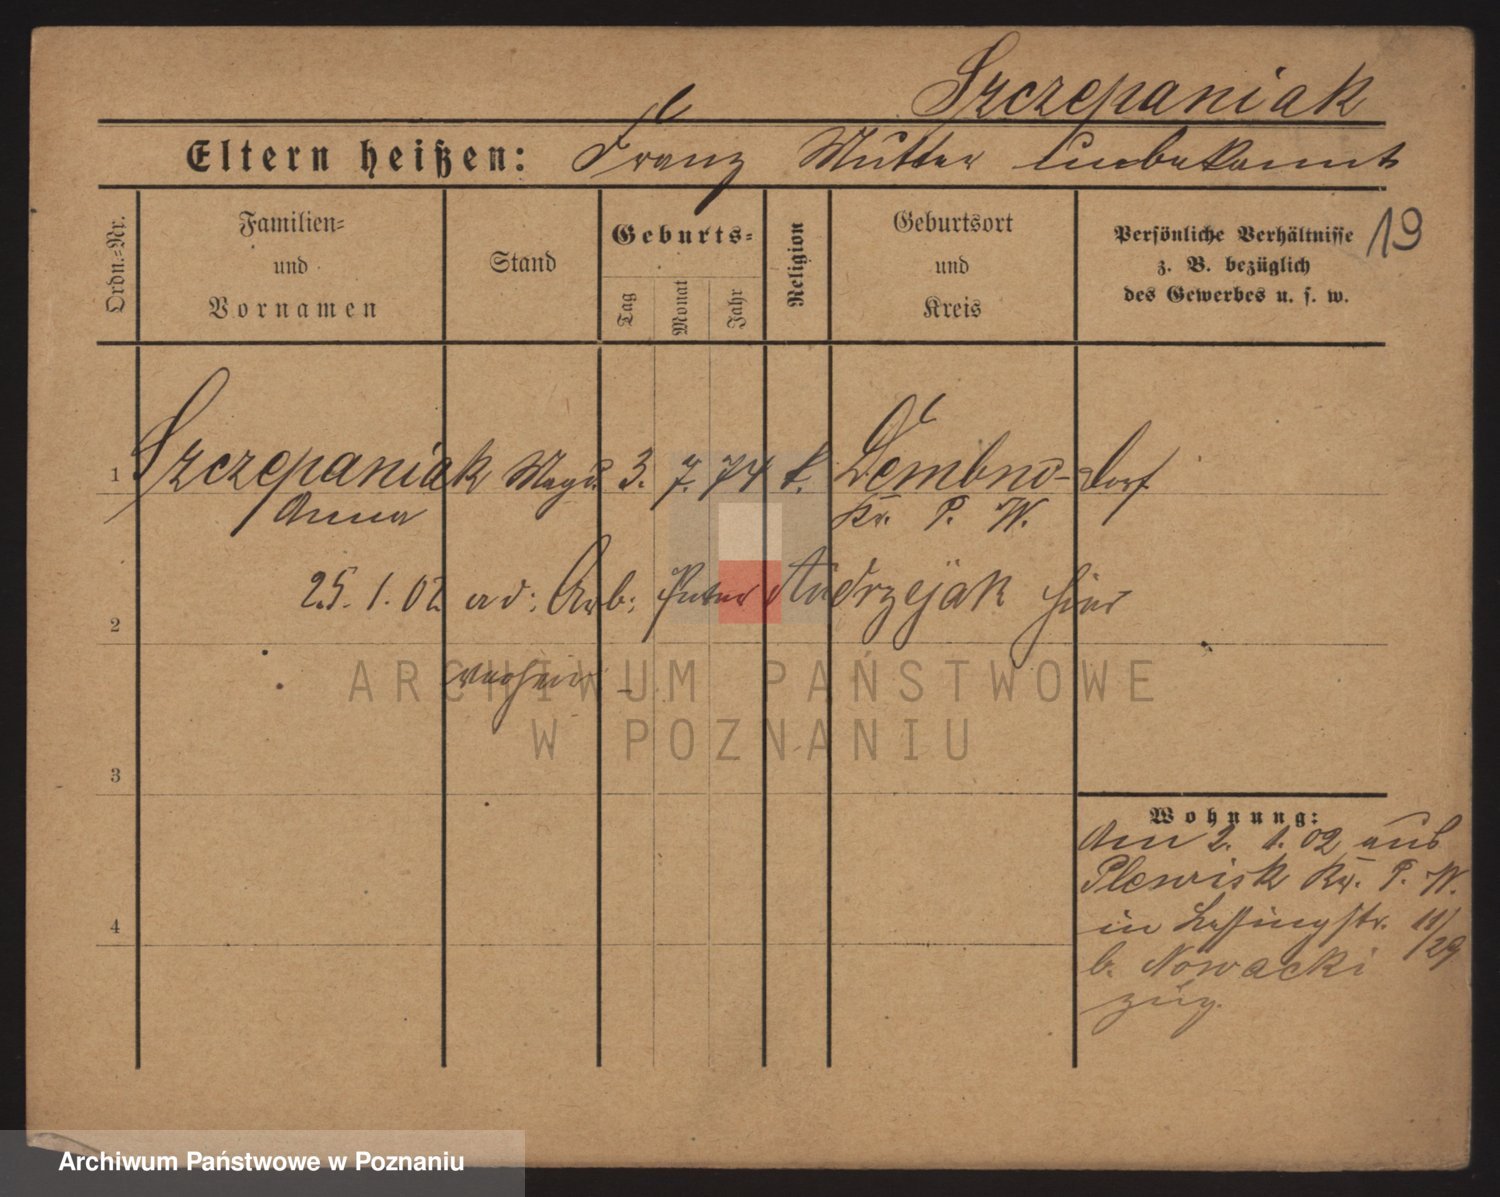 Szczepaniak
Eltern heißen: Franz Mutter unbekannt
Ordn.-Nr.
Familien-
und
Vornamen
Stand
Geburts-
Tag
Monat
Jahr
Religion
Geburtsort
und
Kreis
Persönliche Verhältnisse
z. B. bezüglich
des Gewerbes u. s. w.
19
1 Szczepaniak Magd 3. 7. 74 k. Dembno- dorf
Anna Kr. P. W.
25. 1. 02 Arb: Peter Andrzejak hier
2
ARCHIWUM PAŃSTWOWE
W POZNANIU
3
4
Wohnung:
Am 2. 1. 02 aus
Plewisk Kr. P. W.
in Lessingstr. 11/29
b. Nowacki
zug.
Archiwum Państwowe w Poznaniu